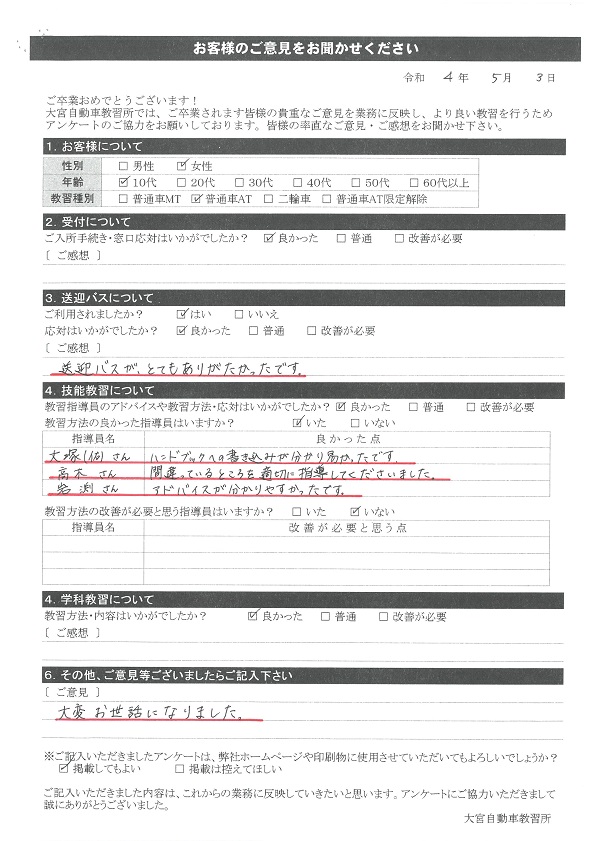 お客様のご意見をお聞かせください
令和 4 年 5 月 3 日
ご卒業おめでとうございます！
大宮自動車教習所では、ご卒業されます皆様の貴重なご意見を業務に反映し、より良い教習を行うため
アンケートのご協力をお願いしております。皆様の率直なご意見・ご感想をお聞かせ下さい。
1. お客様について
性別 □ 男性 ☑ 女性
年齢 ☑ 10代 □ 20代 □ 30代 □ 40代 □ 50代 □ 60代以上
教習種別 □ 普通車MT ☑ 普通車AT □ 二輪車 □ 普通車AT限定解除
2. 受付について
ご入所手続き・窓口応対はいかがでしたか？ ☑ 良かった □ 普通 □ 改善が必要
［ ご感想 ］
3. 送迎バスについて
ご利用されましたか？ ☑ はい □ いいえ
応対はいかがでしたか？ ☑ 良かった □ 普通 □ 改善が必要
［ ご感想 ］
送迎バスが、とてもありがたかったです。
4. 技能教習について
教習指導員のアドバイスや教習方法・応対はいかがでしたか？ ☑ 良かった □ 普通 □ 改善が必要
教習方法の良かった指導員はいますか？ ☑ いた □ いない
指導員名 良かった点
大塚(佑) さん ハンドブックへの書き込みが分かり易かったです。
高木 さん 間違っているところを適切に指導してくださいました。
岩渕 さん アドバイスが分かりやすかったです。
教習方法の改善が必要と思う指導員はいますか？ □ いた ☑ いない
指導員名 改善が必要と思う点
4. 学科教習について
教習方法・内容はいかがでしたか？ ☑ 良かった □ 普通 □ 改善が必要
［ ご感想 ］
6. その他、ご意見等ございましたらご記入下さい
［ ご意見 ］
大変お世話になりました。
※ご記入いただきましたアンケートは、弊社ホームページや印刷物に使用させていただいてもよろしいでしょうか？
☑ 掲載してもよい □ 掲載は控えてほしい
ご記入いただきました内容は、これからの業務に反映していきたいと思います。アンケートにご協力いただきまして
誠にありがとうございました。
大宮自動車教習所